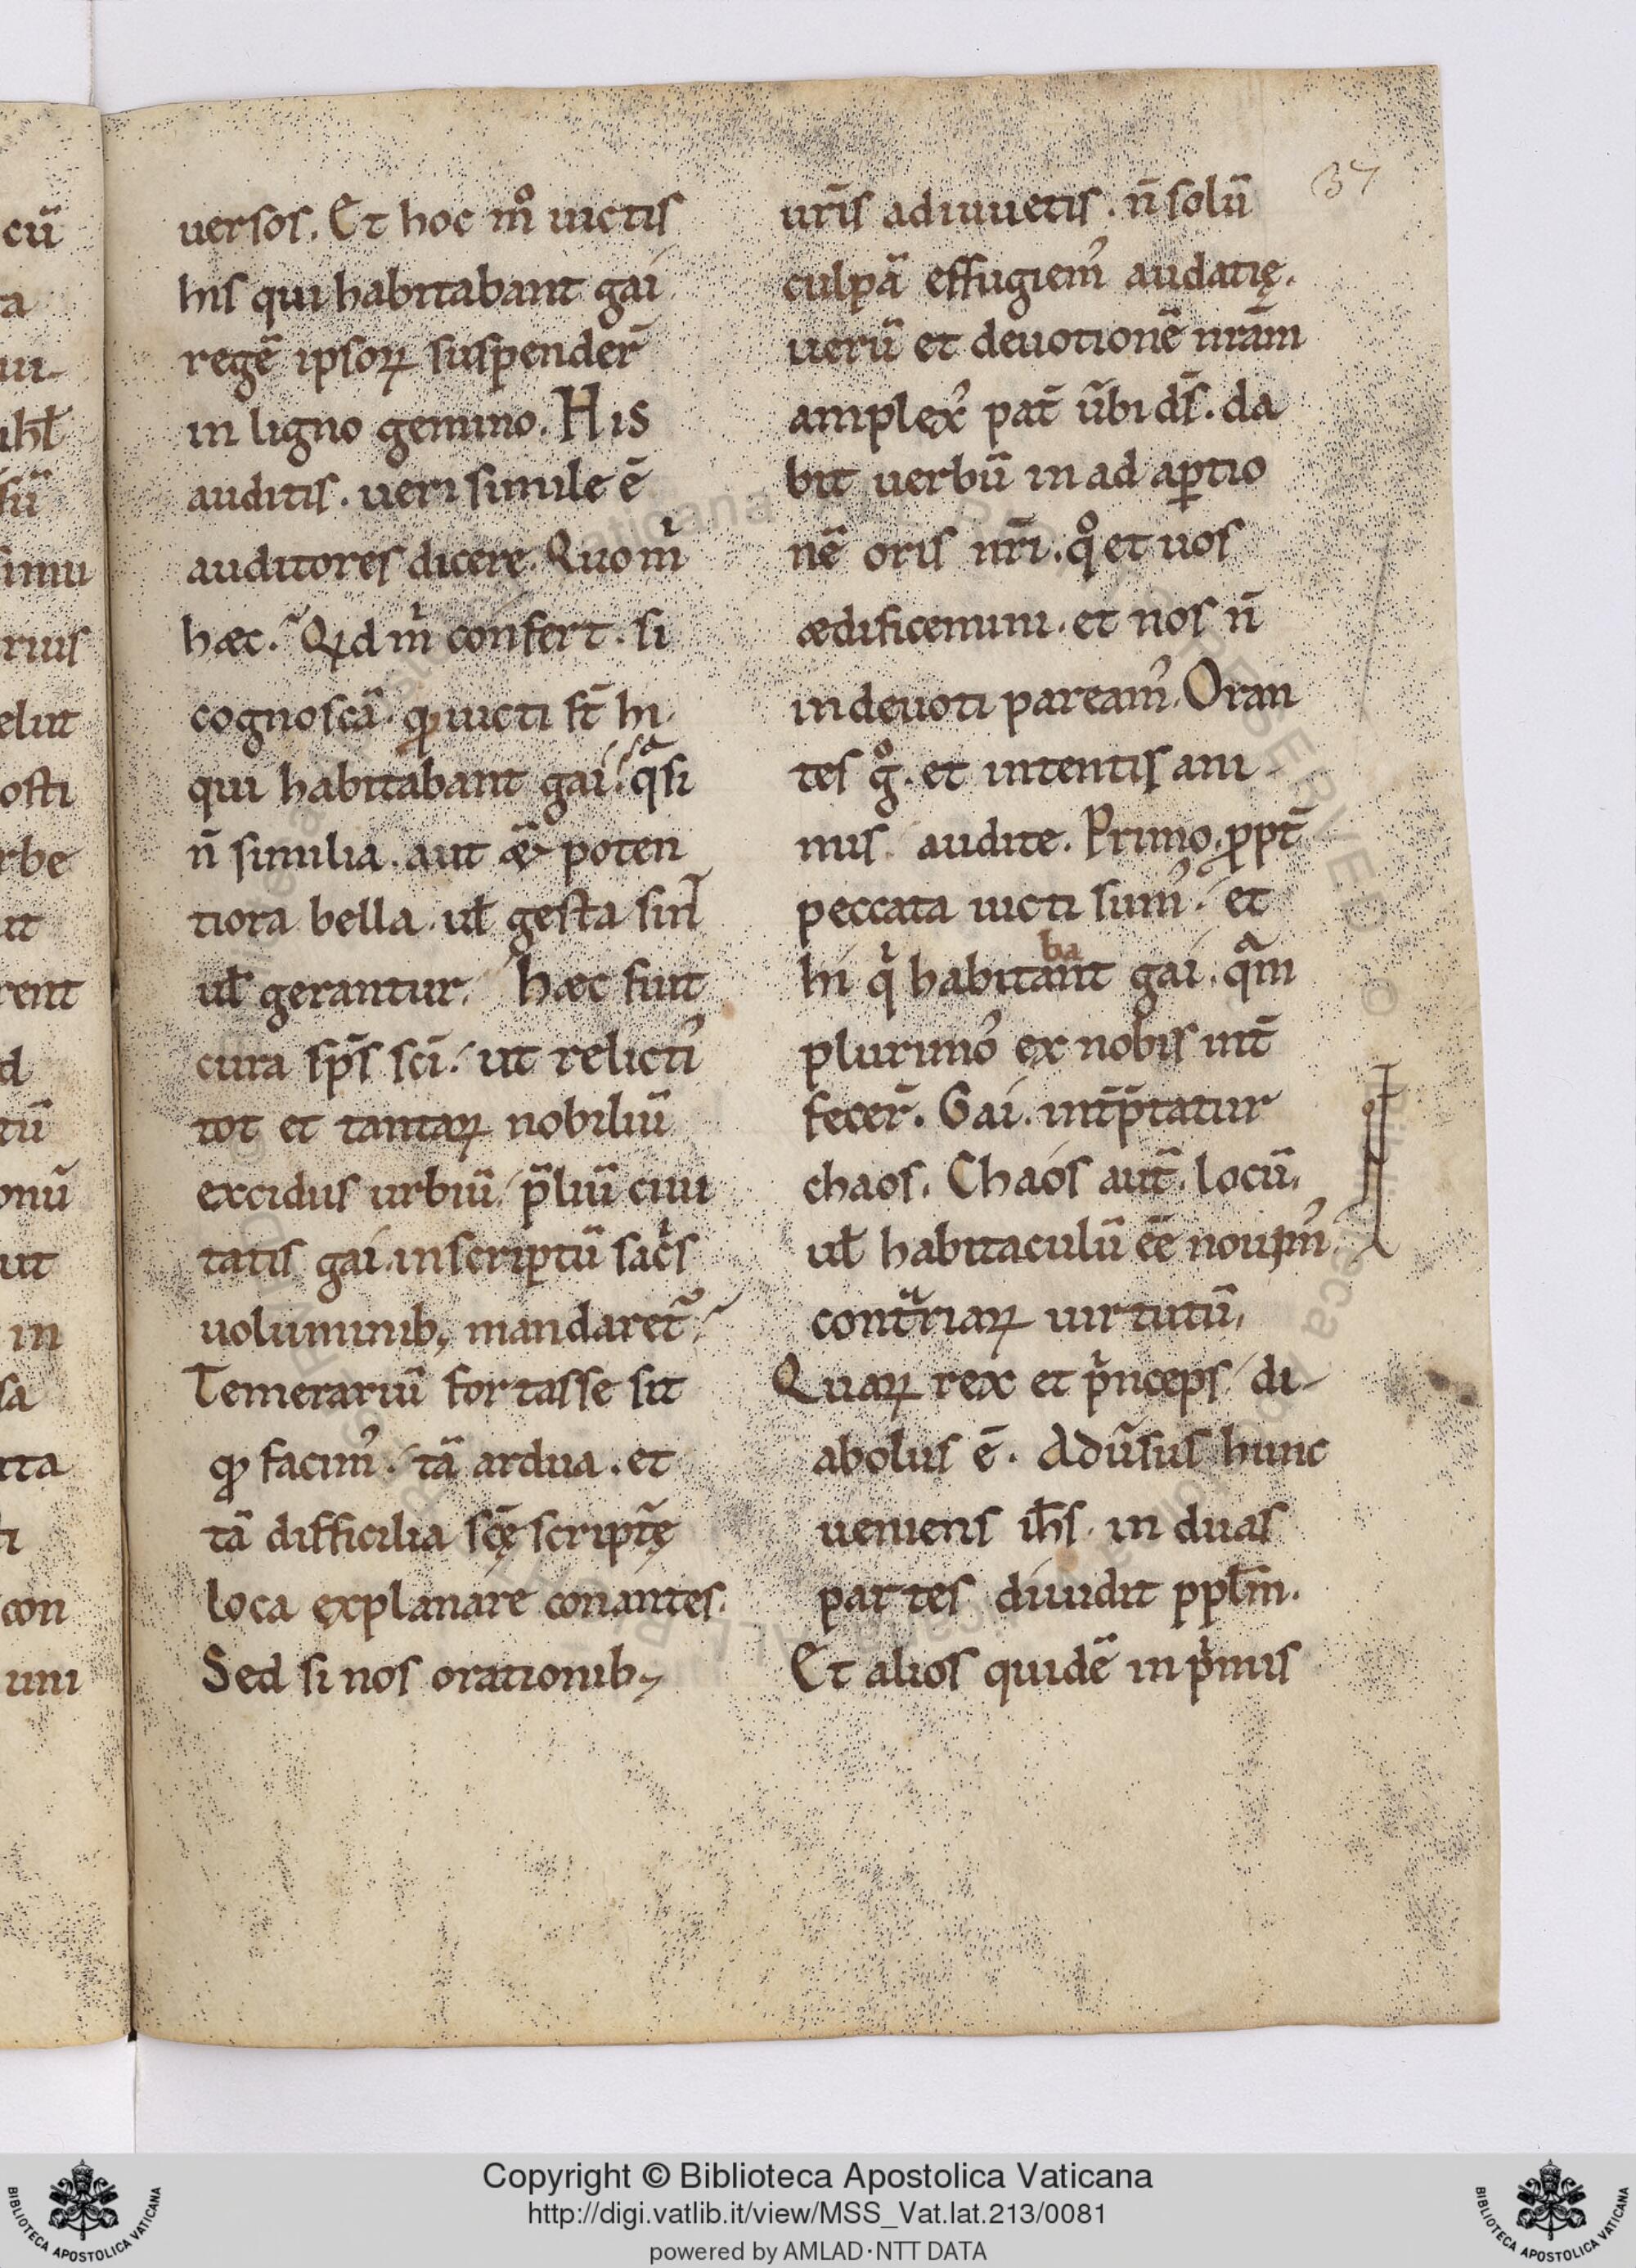 cū
a
ui-
ihł
sū
simu
rius
elut
osti
rbe
ut
rent
d
tū
onū
ut
in
sa
rta
ti
con
uni
uersos. Et hoc m̊ uictis
his qui habitabant gai
regē ipsoꝝ suspender̄
in ligno gemino. His
auditis. ueri simile ē
auditores dicere. Quo m̍
hæc. Qıd m̍ confert. si
cognoscā. ꝙ uicti st̄ hi.
qui habitabant gai. qͣsi
n̄ similia. aut ǣ poten
tiora bella. uł gesta sint
uł gerantur. Hæc fuit
cura sp̄s sc̄i. ut relictıꝰ
tot et tantaꝝ nobiliū
excidus urbiū. p̄liū ciui
tatis gai. in scriptū sacͥs
uoluminib; mandaret᷑.
Temerariū fortasse sit
ꝙ facimꝰ. tā ardua. et
tā difficilia sc̄ę scriptȩ̄
loca explanare conantes.
Sed si nos orationib;
37
ur̄is adiuuetis. n̄ solū
culpā effugiemꝰ audatię.
uerū et deuotionē nr̄am
amplexꝰ pat̄ ūbi ds̄. da
bit uerbū in ad aꝑtio
nē oris nr̄i. qͦ et uos
ædificemini. et nos n̄
indeuoti pareamꝰ. Oran
tes gͦ. et intentis ani
mis audite. Primo. ꝓpt̄
peccata uicti sumꝰ. et
ba
hi qͥ habitant gai. qͣm
plurimoꝰ ex nobis int̄
fecer̄. Gai. int̄p̄tatur
chaos. Chaos aut̄. locū.
uł habitaculū ēē nouimꝰ.
contͣriaꝝ uirtutū.
Quaꝝ rex et pͥnceps di-
abolus ē. Adūsus hunc
ueniens ih̄s. in duas
partes diuidit ppłm.
Et alios quidē in pͥmis
Copyright © Biblioteca Apostolica Vaticana
http://digi.vatlib.it/view/MSS_Vat.lat.213/0081
powered by AMLAD·NTT DATA
BIBLIOTECA APOSTOLICA VATICANA
BIBLIOTECA APOSTOLICA VATICANA